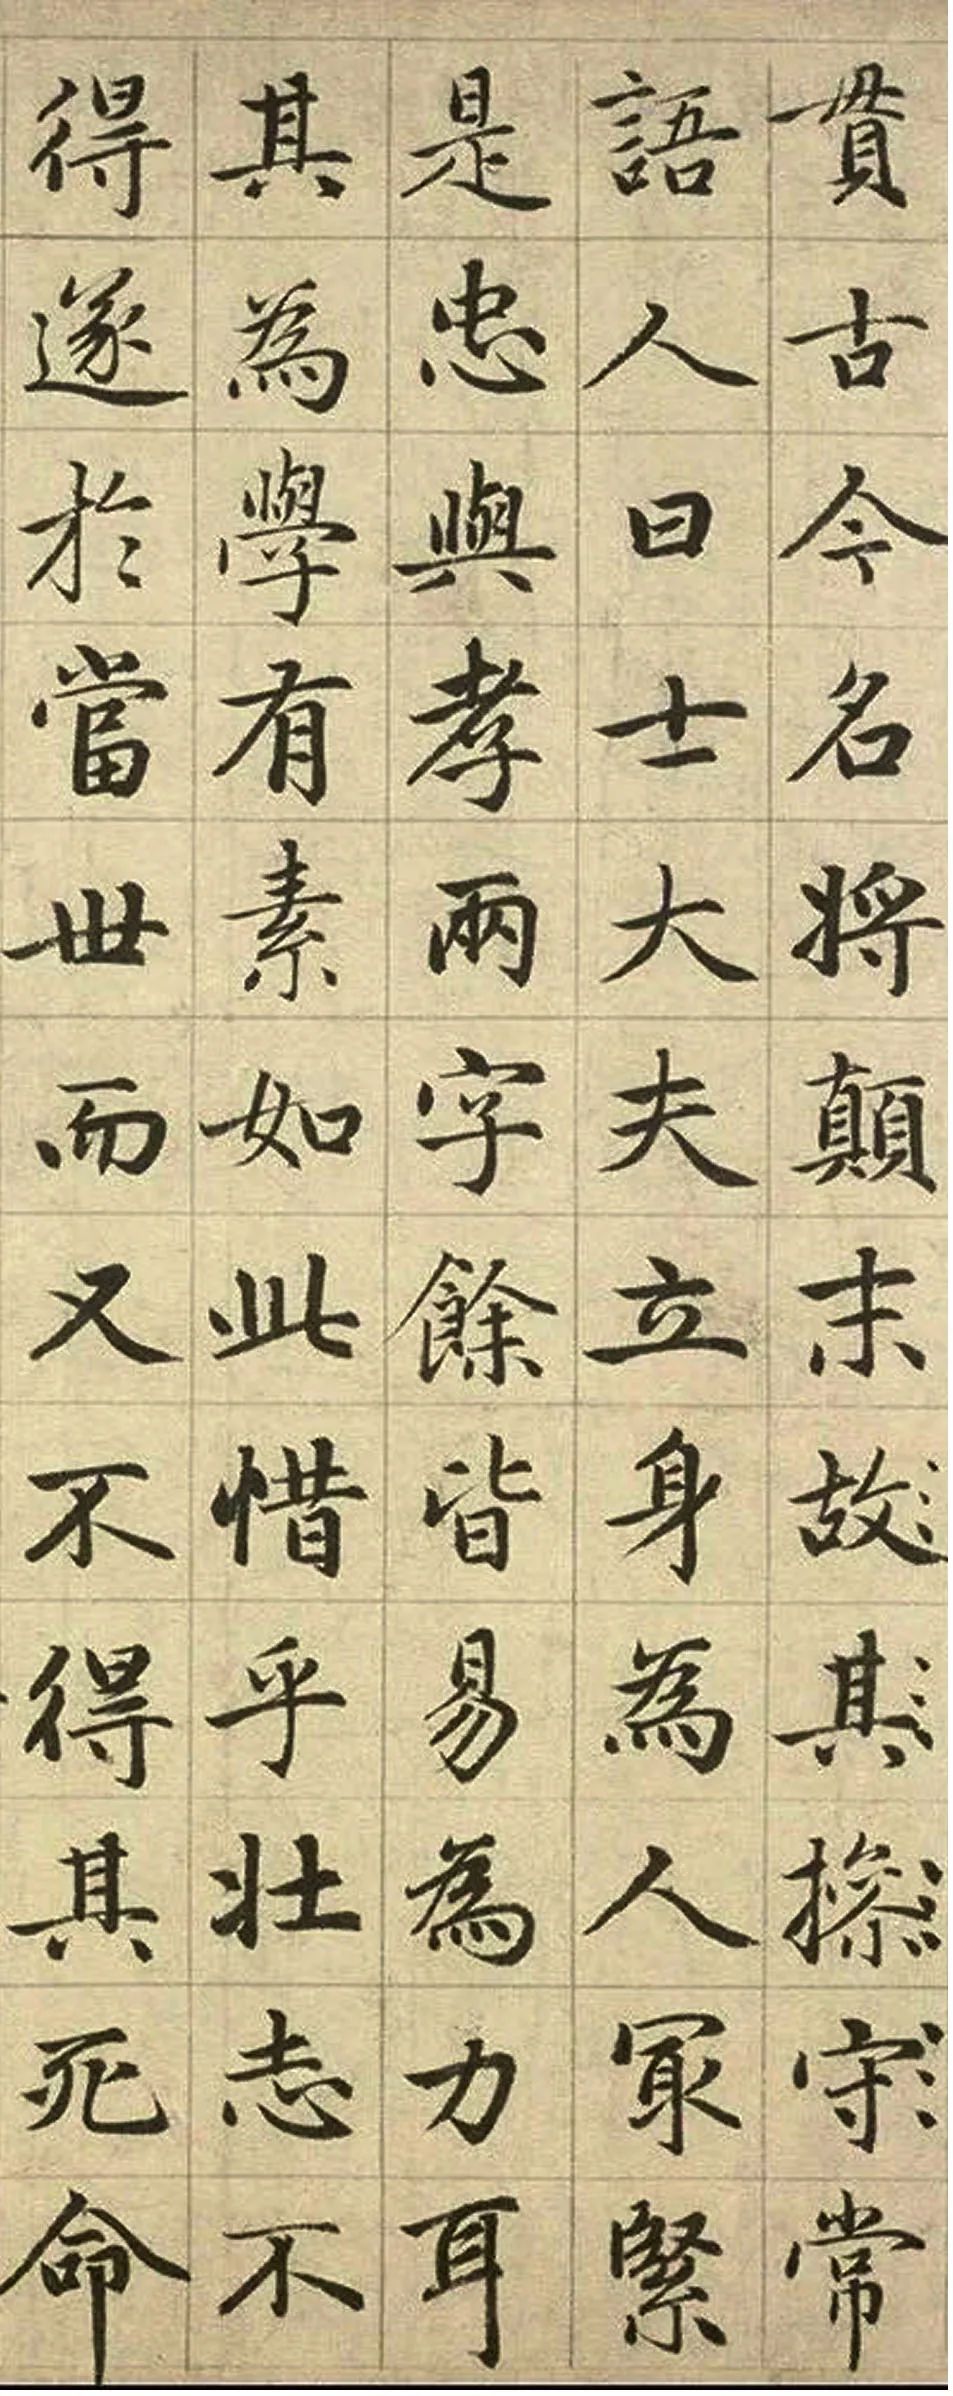 貫古今名將顛末故其操守常
語人曰士大夫立身為人冣緊
是忠與孝兩字餘皆易為力耳
其為學有素如此惜乎壯志不
得遂於當世而又不得其死命